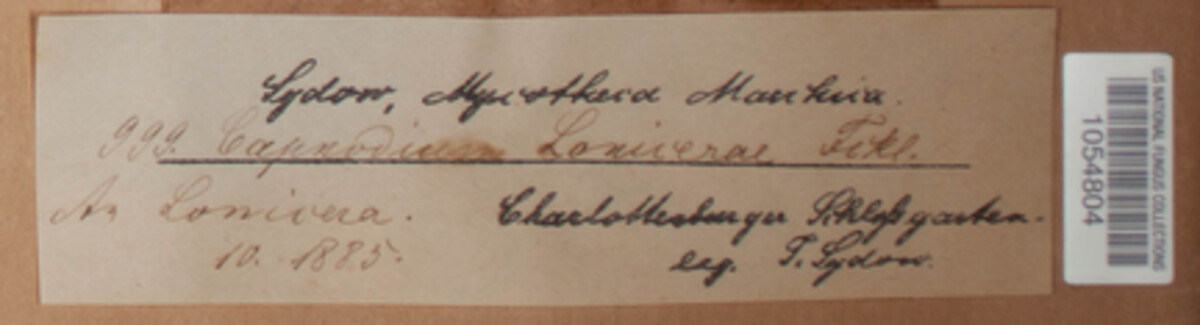 Sydow, Mycotheca Marchica.
999. Capnodium Lonicerae Fckl.
An Lonicera. Charlottenburger Schloßgarten.
10. 1885. leg. P. Sydow.
US NATIONAL FUNGUS COLLECTIONS
1054804